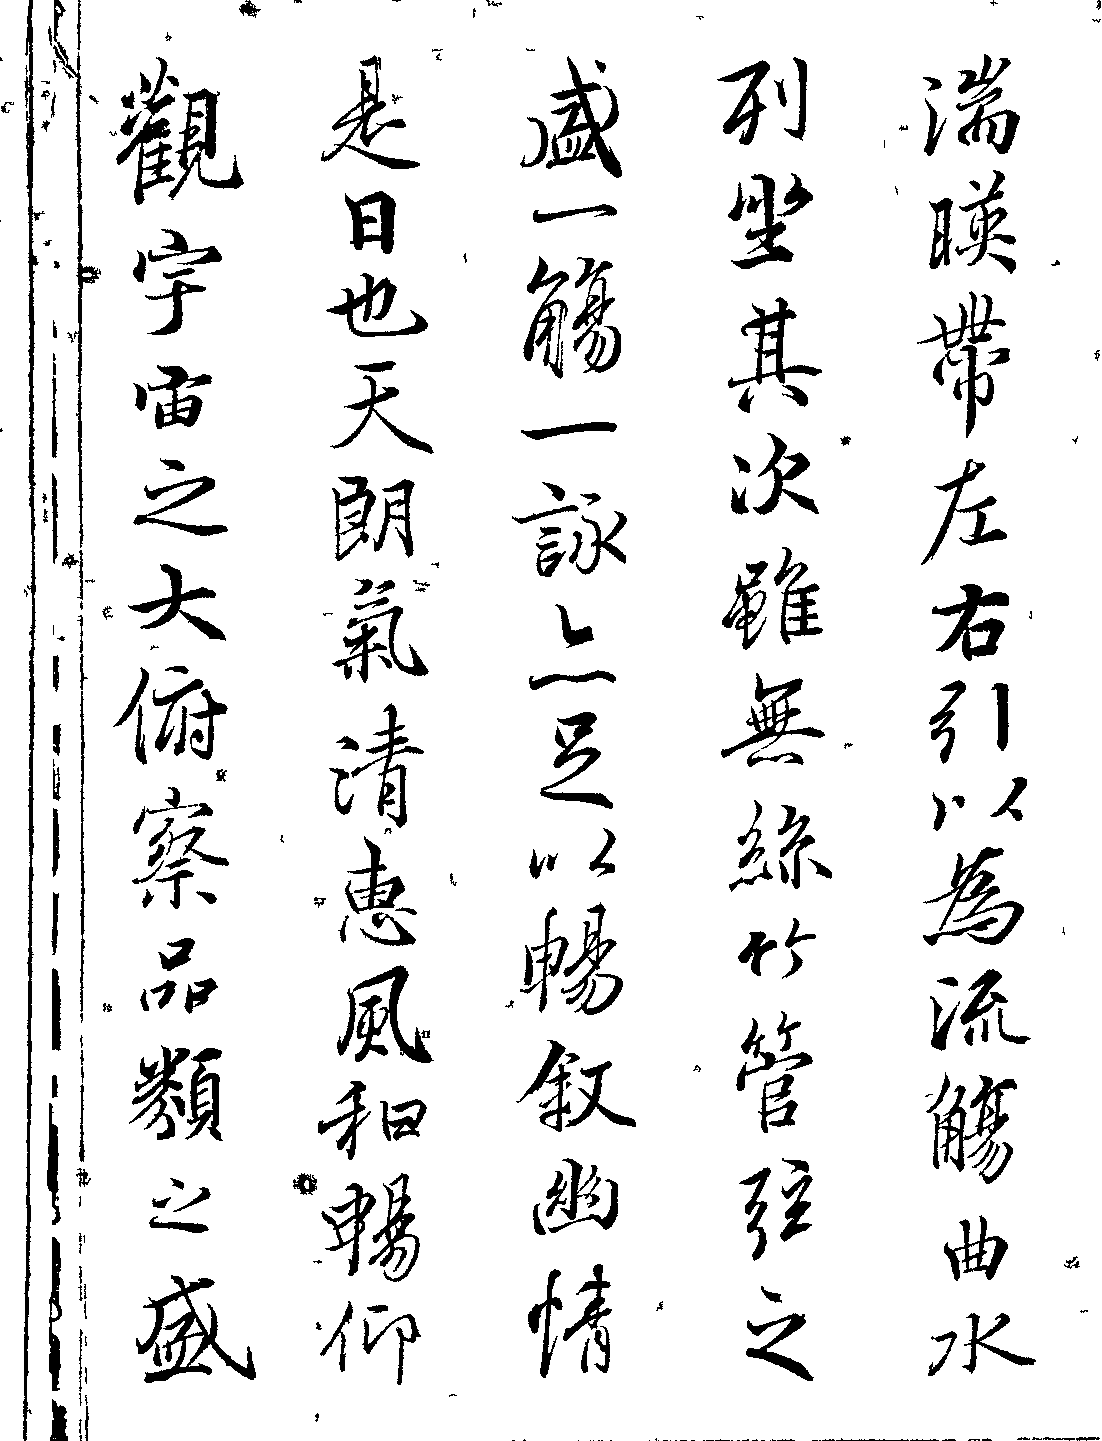 湍暎帶左右引以為流觴曲水
列坐其次雖無絲竹管弦之
盛一觴一詠亦足以暢敘幽情
是日也天朗氣清惠風和暢仰
觀宇宙之大俯察品類之盛